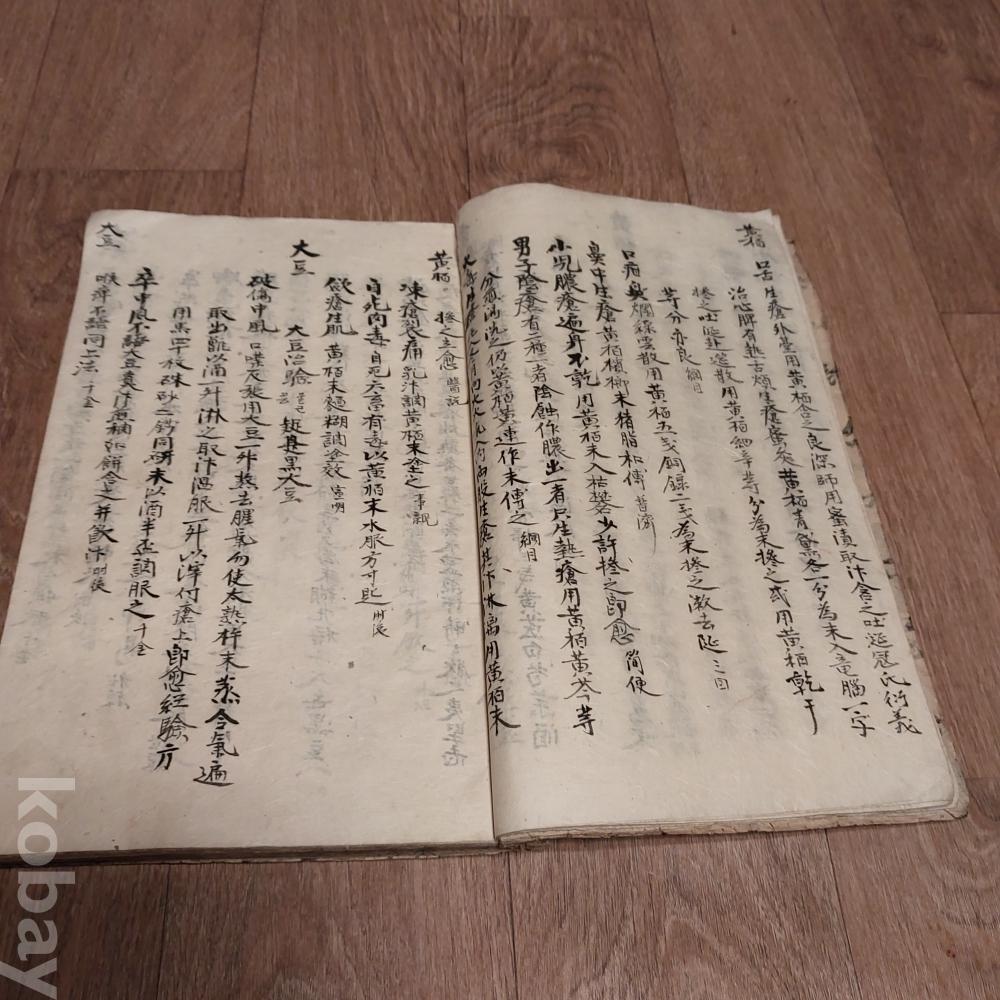 黄栢
口舌生瘡外臺用黄栢含之良深師用蜜漬取汁含之吐涎冦氏衍義
治心脾有熱舌頰生瘡 黄栢青黛各一分為末入竜腦一字
摻之吐涎 赴筵散用黄栢細辛等分為末摻之或用黄栢乾干
等分亦良 綱目
口疳臭爛綠雲散用黄栢五戋銅録二戋為末摻之漱去涎 三因
鼻中生瘡黄栢檳榔末猪脂和傅 普濟
小児膿瘡遍身不乾用黄栢末入枯礬少許摻之即愈 簡便
男子陰瘡有二種一者陰蝕作膿出一者只生熱瘡用黄栢黄芩等
分煎湯洗之仍黄栢黄連作末傅之 綱目
汁淋漓用黄栢末
黄栢
摻之立愈 醫説
凍瘡裂痛乳汁調黄栢末塗之 事親
自死肉毒自死六畜有毒以黄栢末水服方寸匙 肘後
歛瘡生肌 黄栢末麵糊調塗效 宣明
大豆
大豆治驗 黒大豆
破傷中風口噤 用大豆一升熬去腥氣勿使太熱杵末蒸令氣遍
取出甑以酒一升淋之取汁温服一升以滓付瘡上即愈經驗方
用黒豆四十枚硃砂二戋同研末以酒半盃調服之 千金
卒中風不語大豆煮汁 稠如餅含之并飲汁 肘後
喉痺不語同上法 千金
大豆
kobay